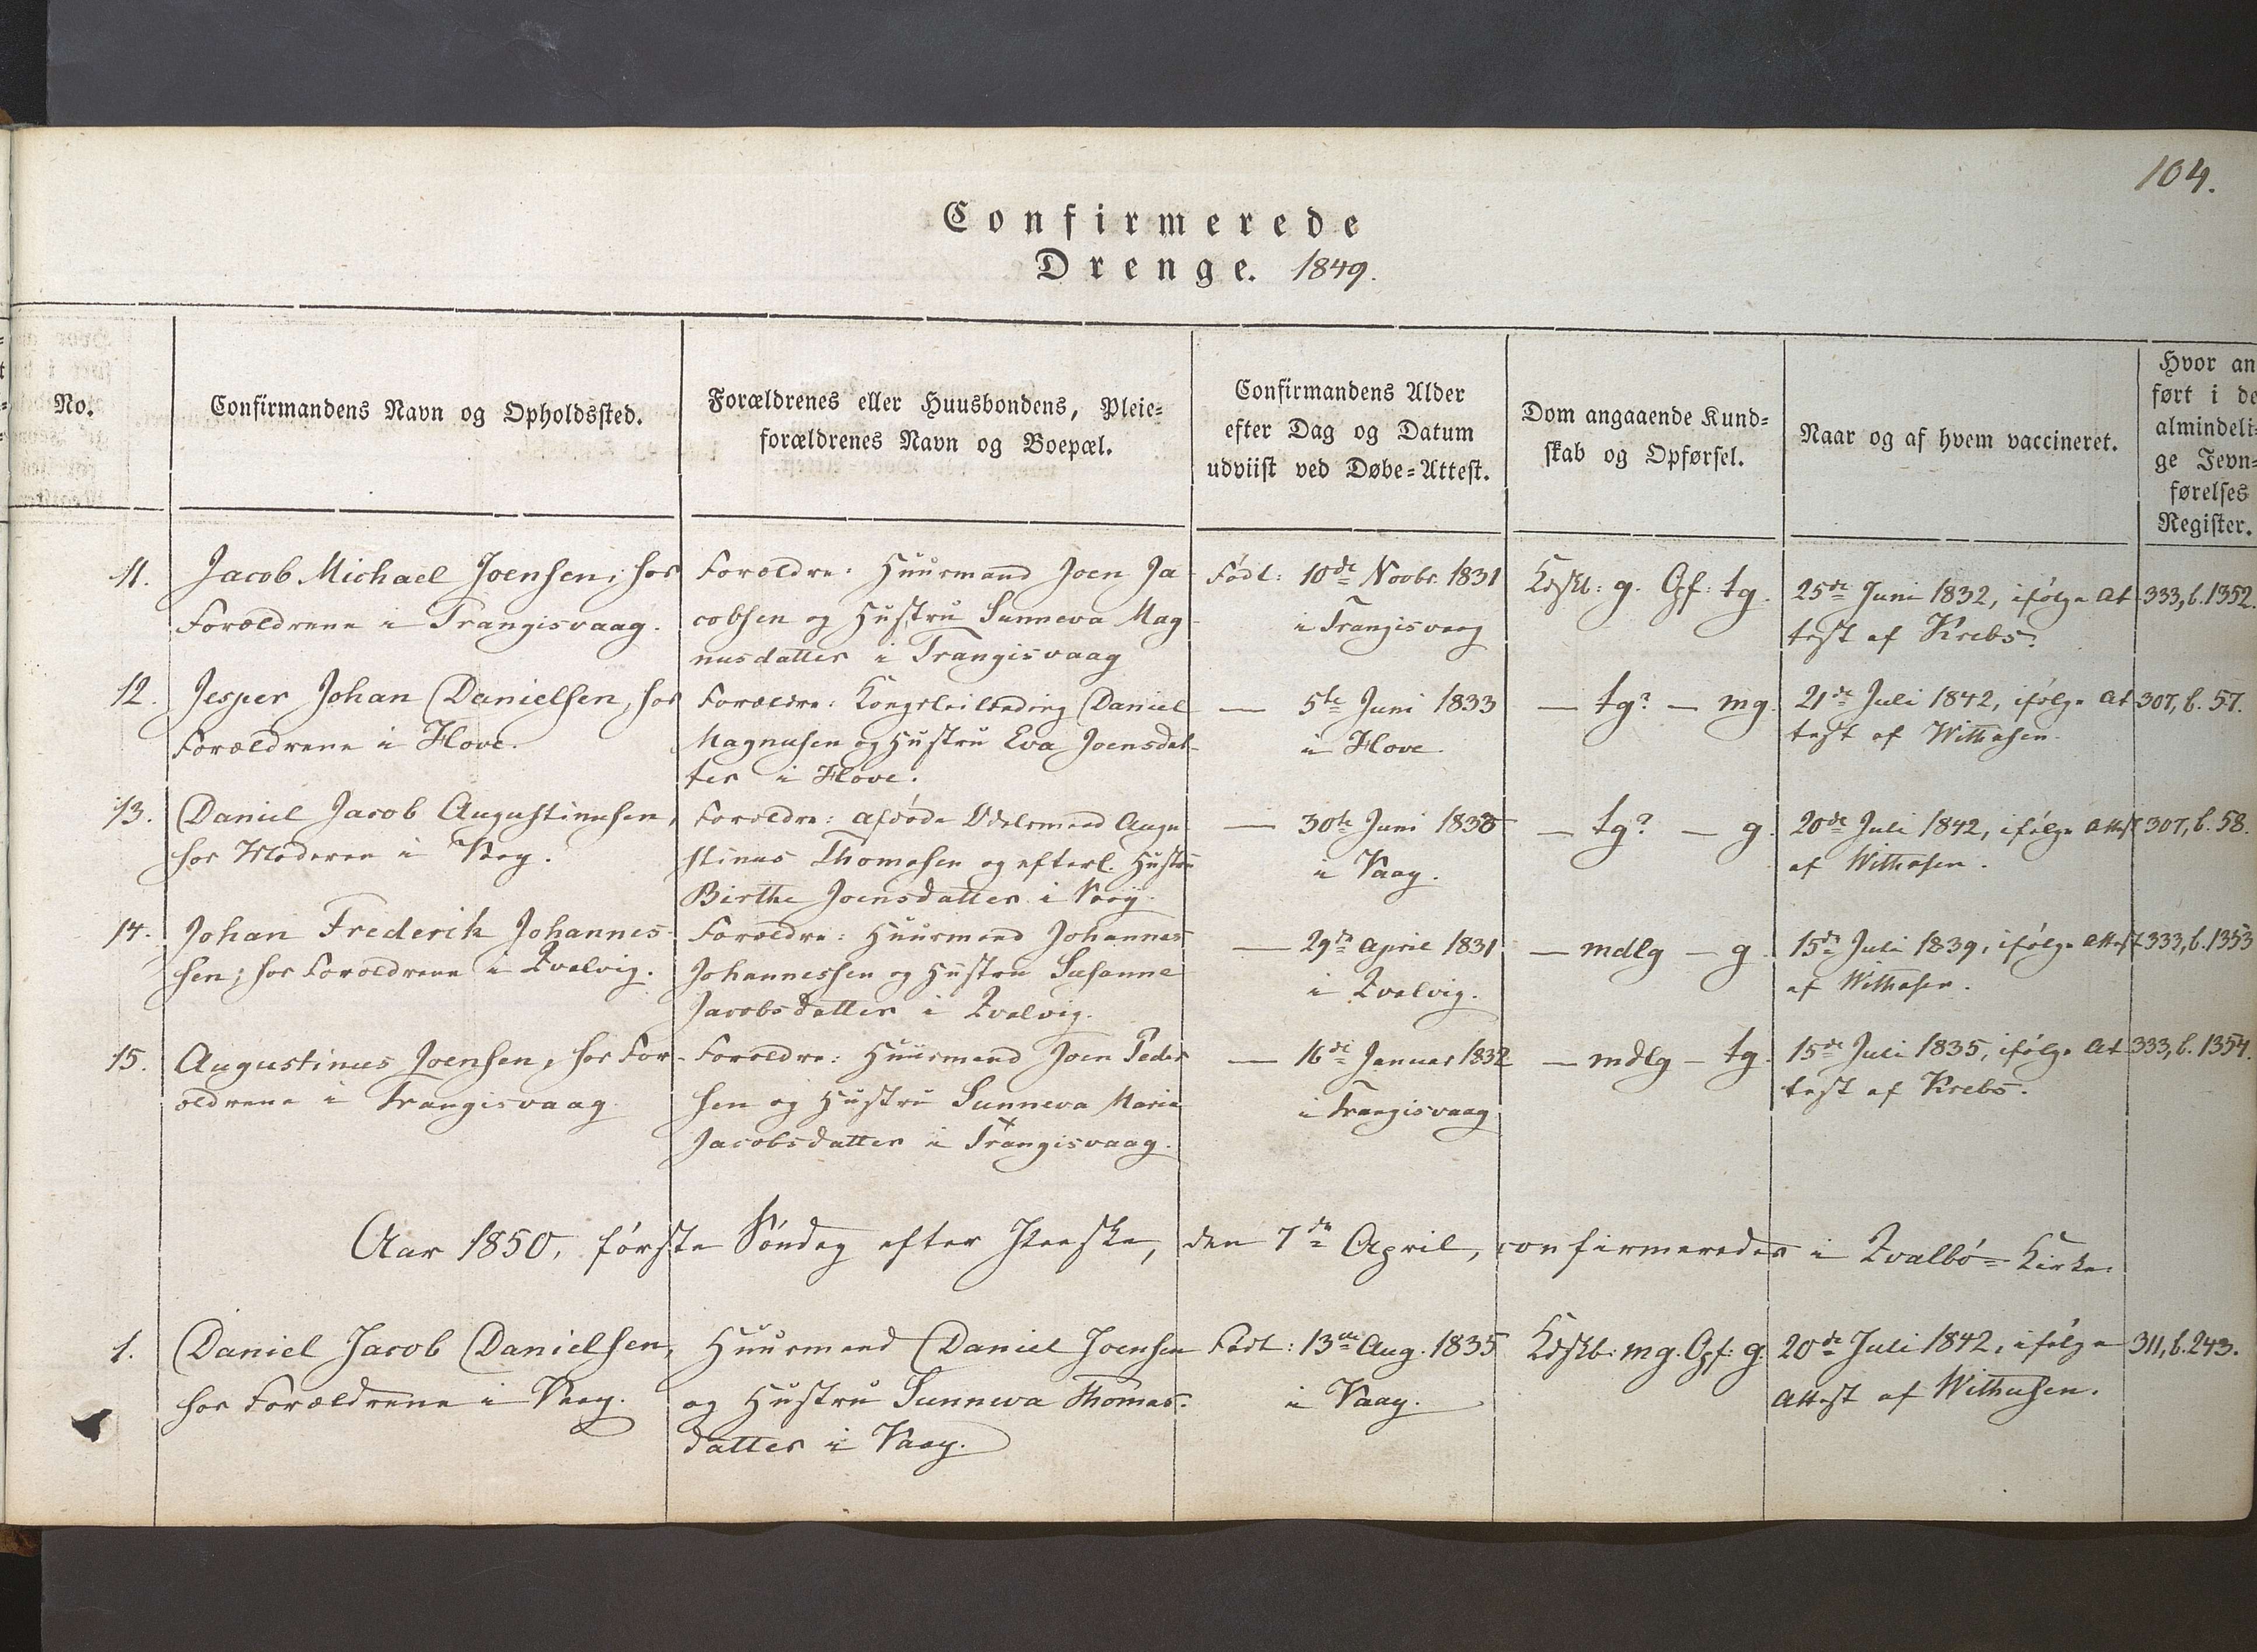 104.
Confirmerede
Drenge. 1849.
No.
Confirmandens Navn og Opholdssted.
Forældrenes eller Huusbondens, Pleie=
forældrenes Navn og Boepæl.
Confirmandens Alder
efter Dag og Datum
udviist ved Døbe=Attest.
Dom angaaende Kund=
skab og Opførsel.
Naar og af hvem vaccineret.
Hvor an
ført i de
almindeli=
ge Jevn=
førelses
Register.
11.
Jacob Michael Joensen; hos
Forældrene i Trangisvaag.
Forældre: Huusmand Joen Ja
cobsen og Hustru Sunneva Mag
nusdatter i Trangisvaag
Født: 10de Novbr 1831
i Trangisvaag
Kdskb: g. Opf: tg.
25de Juni 1832, ifølge At
test af Krebs.
333, b. 1352.
12.
Jesper Johan Danielsen, hos
Forældrene i Hove.
Forældre: Kongsleilænding Daniel
Magnusen og Hustru Eva Joensdat
ter i Hove.
— 5te Juni 1833
i Hove.
— tg? — mg.
21de Juli 1842, ifølge At
test af Withusen.
307, b. 57.
13.
Daniel Jacob Augustinusen,
hos Moderen i Vaag.
Forældre: afdøde Odelsmand Augu
stinus Thomasen og efterl. Hustru
Birthe Joensdatter i Vaag.
— 30te Juni 1833
i Vaag.
— tg? — g.
20de Juli 1842, ifølge Attest
af Withusen.
307, b. 58.
14.
Johan Frederik Johannes-
sen; hos Forældrene i Qvalvig.
Forældre: Huusmand Johannes
Johannessen og Hustru Susanne
Jacobsdatter i Qvalvig.
— 29de April 1831
i Qvalvig.
— mdlg — g.
15de Juli 1839, ifølge Attest
af Withusen.
333, b. 1353
15.
Augustinus Joensen, hos For-
ældrene i Trangisvaag
Forældre: Huusmand Joen Peder
sen og Hustru Sunneva Maria
Jacobsdatter i Trangisvaag.
— 16de Januar 1832
i Trangisvaag
— mdlg — tg.
15de Juli 1835, ifølge At
test af Krebs.
333, b. 1354.
Aar 1850, første Søndag efter Paaske, den 7de April, confirmeredes i Qvalbø=Kirke:
1.
Daniel Jacob Danielsen,
hos Forældrene i Vaag.
Huusmand Daniel Joensen
og Hustru Sunneva Thomas-
datter i Vaag.
Født: 13de Aug. 1835
i Vaag.
Kdskb: mg. Opf: g.
20de Juli 1842, ifølge
Attest af Withusen.
311, b. 243.